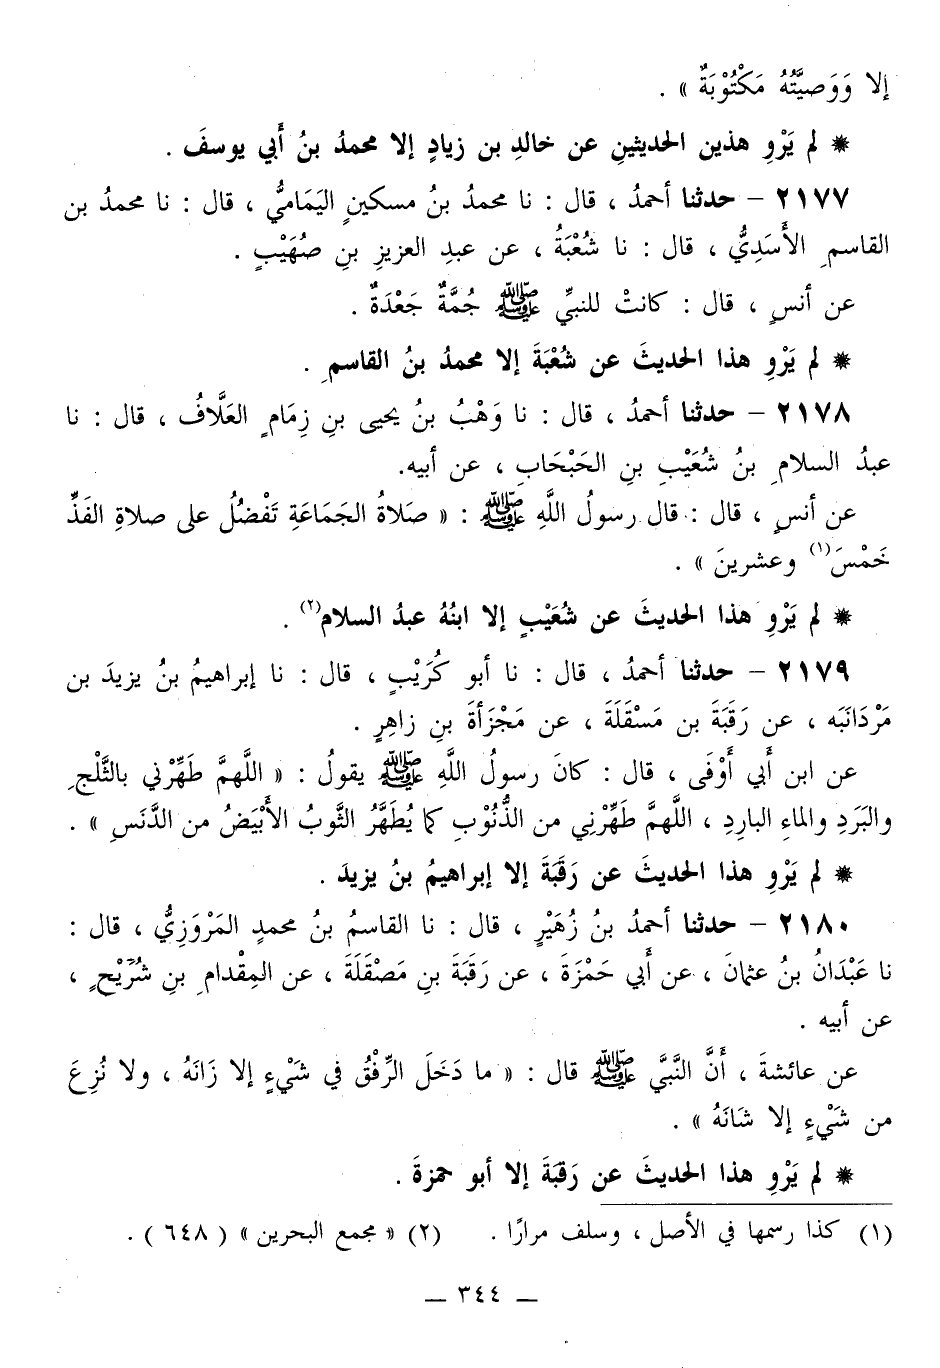 إلا وَوَصيَّتُهُ مَكْتُوْبَةٌ » .
* لم يَرْوِ هذين الحديثينِ عن خالدِ بن زيادٍ إلا محمدُ بنُ أَبي يوسفَ .
٢١٧٧ – حدثنا أحمدُ ، قال : نا محمدُ بنُ مسكينٍ اليَمَاميُّ ، قال : نا محمدُ بن
القاسمِ الأَسَدِيُّ ، قال : نا شُعْبَةُ ، عن عبدِ العزيزِ بنِ صهَيْبٍ .
عن أنسٍ ، قال : كانتْ للنبيِّ ﷺ جُمَّةٌ جَعْدَةٌ .
* لم يَرْوِ هذا الحديثَ عن شُعْبَةَ إلا محمدُ بنُ القاسمِ .
٢١٧٨ – حدثنا أحمدُ ، قال : نا وَهْبُ بنُ يحيى بنِ زِمَامٍ العَلَّافُ ، قال : نا
عبدُ السلامِ بنُ شُعَيْبِ بنِ الحَبْحَابِ ، عن أبيه.
عن أنسٍ ، قال : قال رسولُ اللَّهِ ﷺ : « صَلاةُ الجَمَاعَةِ تَفْضُلُ على صلاةِ الفَذِّ
خَمْسَ(١) وعشرينَ » .
* لم يَرْوِ هذا الحديثَ عن شُعَيْبٍ إلا ابنُهُ عبدُ السلام(٢) .
٢١٧٩ – حدثنا أحمدُ ، قال : نا أبو كُرَيْبٍ ، قال : نا إبراهيمُ بنُ يزيدَ بن
مَرْدَانَبَه ، عن رَقَبَةَ بن مَسْقَلَةَ ، عن مَجْزَأةَ بنِ زاهِرٍ .
عن ابن أَبي أَوْفَى ، قال : كانَ رسولُ اللَّهِ ﷺ يقولُ : « اللَّهمَّ طَهِّرْني بالثَّلْجِ
والبَرَدِ والماءِ البارِدِ ، اللَّهمَّ طَهِّرْنِي من الذُّنُوْبِ كما يُطَهَّرُ الثَّوبُ الأَبْيَضُ من الدَّنَسِ » .
* لم يَرْوِ هذا الحديثَ عن رَقَبَةَ إلا إبراهيمُ بنُ يزيدَ .
٢١٨٠ – حدثنا أحمدُ بنُ زُهَيْرٍ ، قال : نا القاسمُ بنُ محمدٍ المَرْوَزِيُّ ، قال :
نا عَبْدَانُ بنُ عثمانَ ، عن أَبي حَمْزَةَ ، عن رَقَبَةَ بنِ مَصْقَلَةَ ، عن المِقْدامِ بنِ شُرَيْحٍ ،
عن أبيه .
عن عائشةَ ، أَنَّ النَّبيَّ ﷺ قال : « ما دَخَلَ الرِّفْقُ في شَيْءٍ إلا زَانَهُ ، ولا نُزِعَ
من شَيْءٍ إلا شَانَهُ » .
* لم يَرْوِ هذا الحديثَ عن رَقَبَةَ إلا أبو حمزةَ .
(١) كذا رسمها في الأصل ، وسلف مرارًا . (٢) « مجمع البحرين » ( ٦٤٨ ) .
— ٣٤٤ —